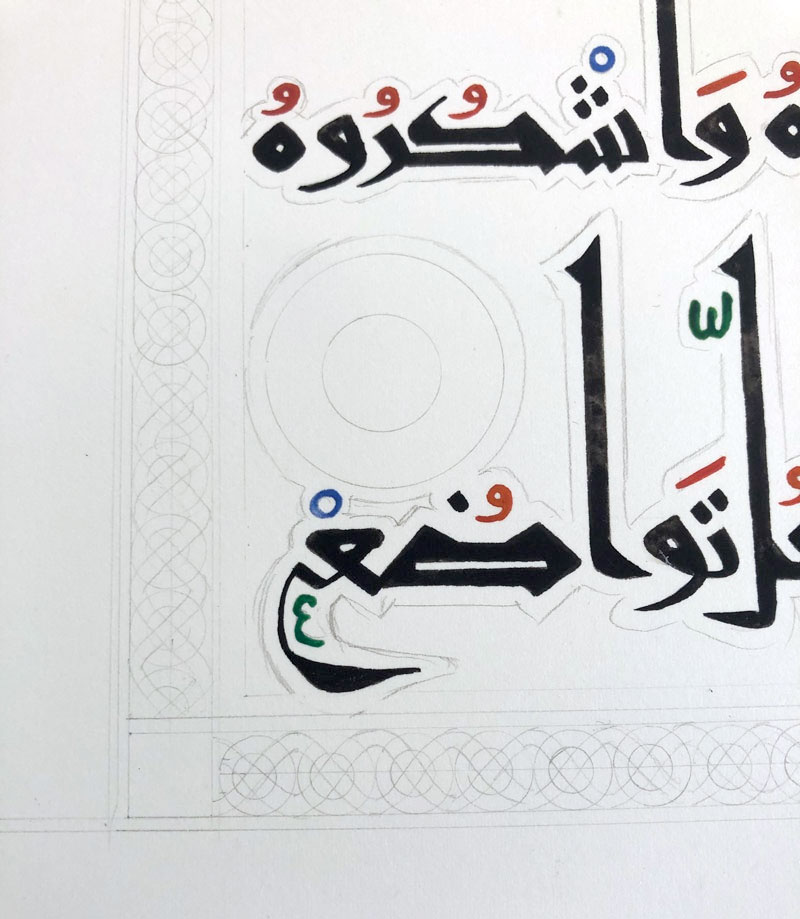 وَاشْكُرُوهُ
تَواضُعْ